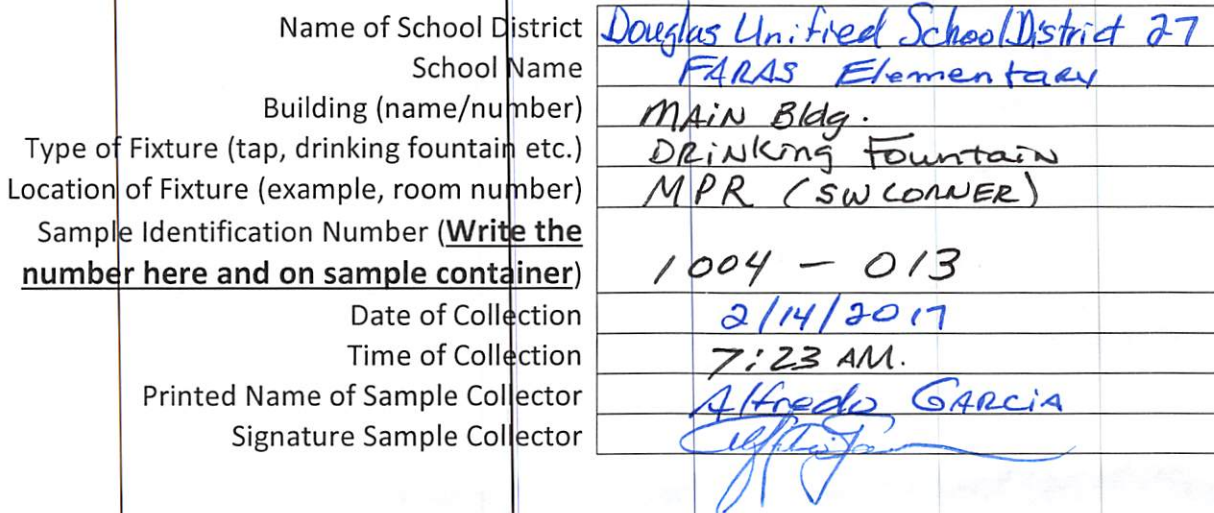 Name of School District Douglas Unified School District 27
School Name FARAS Elementary
Building (name/number) MAiN Bldg.
Type of Fixture (tap, drinking fountain etc.) DRiNKing Fountain
Location of Fixture (example, room number) MPR (SW CORNER)
Sample Identification Number (Write the
number here and on sample container) 1004 - 013
Date of Collection 2/14/2017
Time of Collection 7:23 AM.
Printed Name of Sample Collector Alfredo GARCiA
Signature Sample Collector